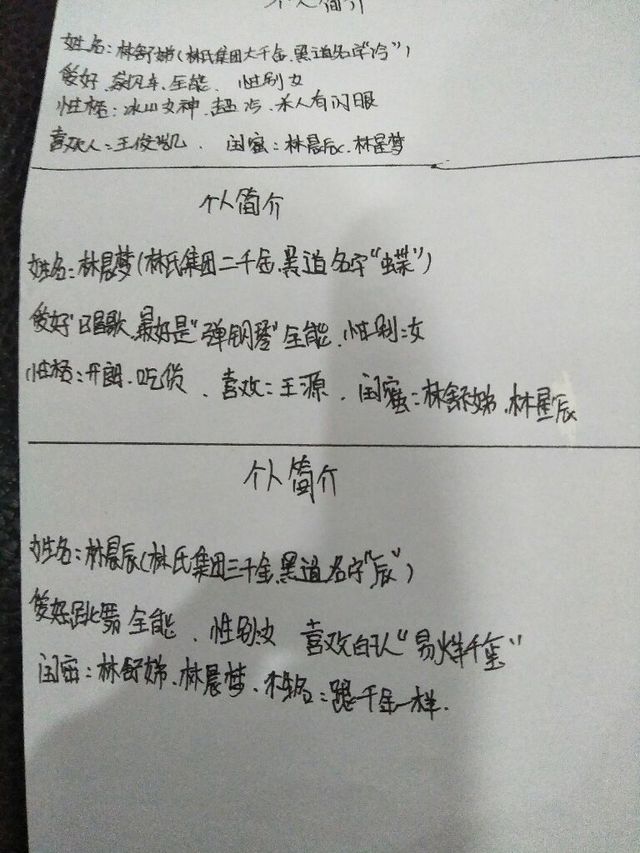 个人简介
姓名：林舒娣(林氏集团大千金.黑道名字"冷")
爱好 .飙汽车.全能. 性别女
性格：冰山女神.超冷.杀人有闪眼
喜欢人：王俊凯. 闺蜜：林晨辰.林星梦
个人简介
姓名：林晨梦(林氏集团二千金.黑道名字"蝶")
爱好"唱歌.最好是"弹钢琴"全能.性别：女
性格：开朗.吃货. 喜欢：王源. 闺蜜：林舒娣.林星辰
个人简介
姓名：林晨辰(林氏集团三千金.黑道名字"辰")
爱好跳舞 全能. 性别女 喜欢的人"易烊千玺"
闺蜜：林舒娣.林晨梦.：跟千金一样.